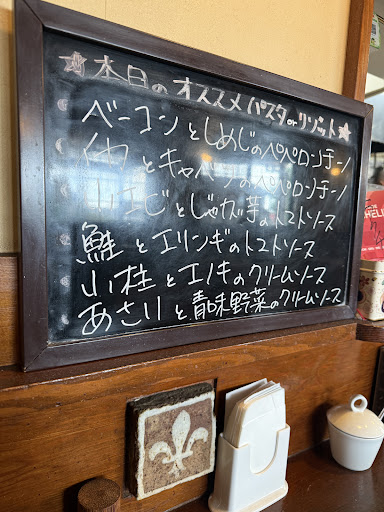 ☆本日のオススメパスタorリゾット☆
ベーコンとしめじのペペロンチーノ
イカとキャベツのペペロンチーノ
小エビとじゃが芋のトマトソース
鮭とエリンギのトマトソース
小柱とエノキのクリームソース
あさりと青味野菜のクリームソース